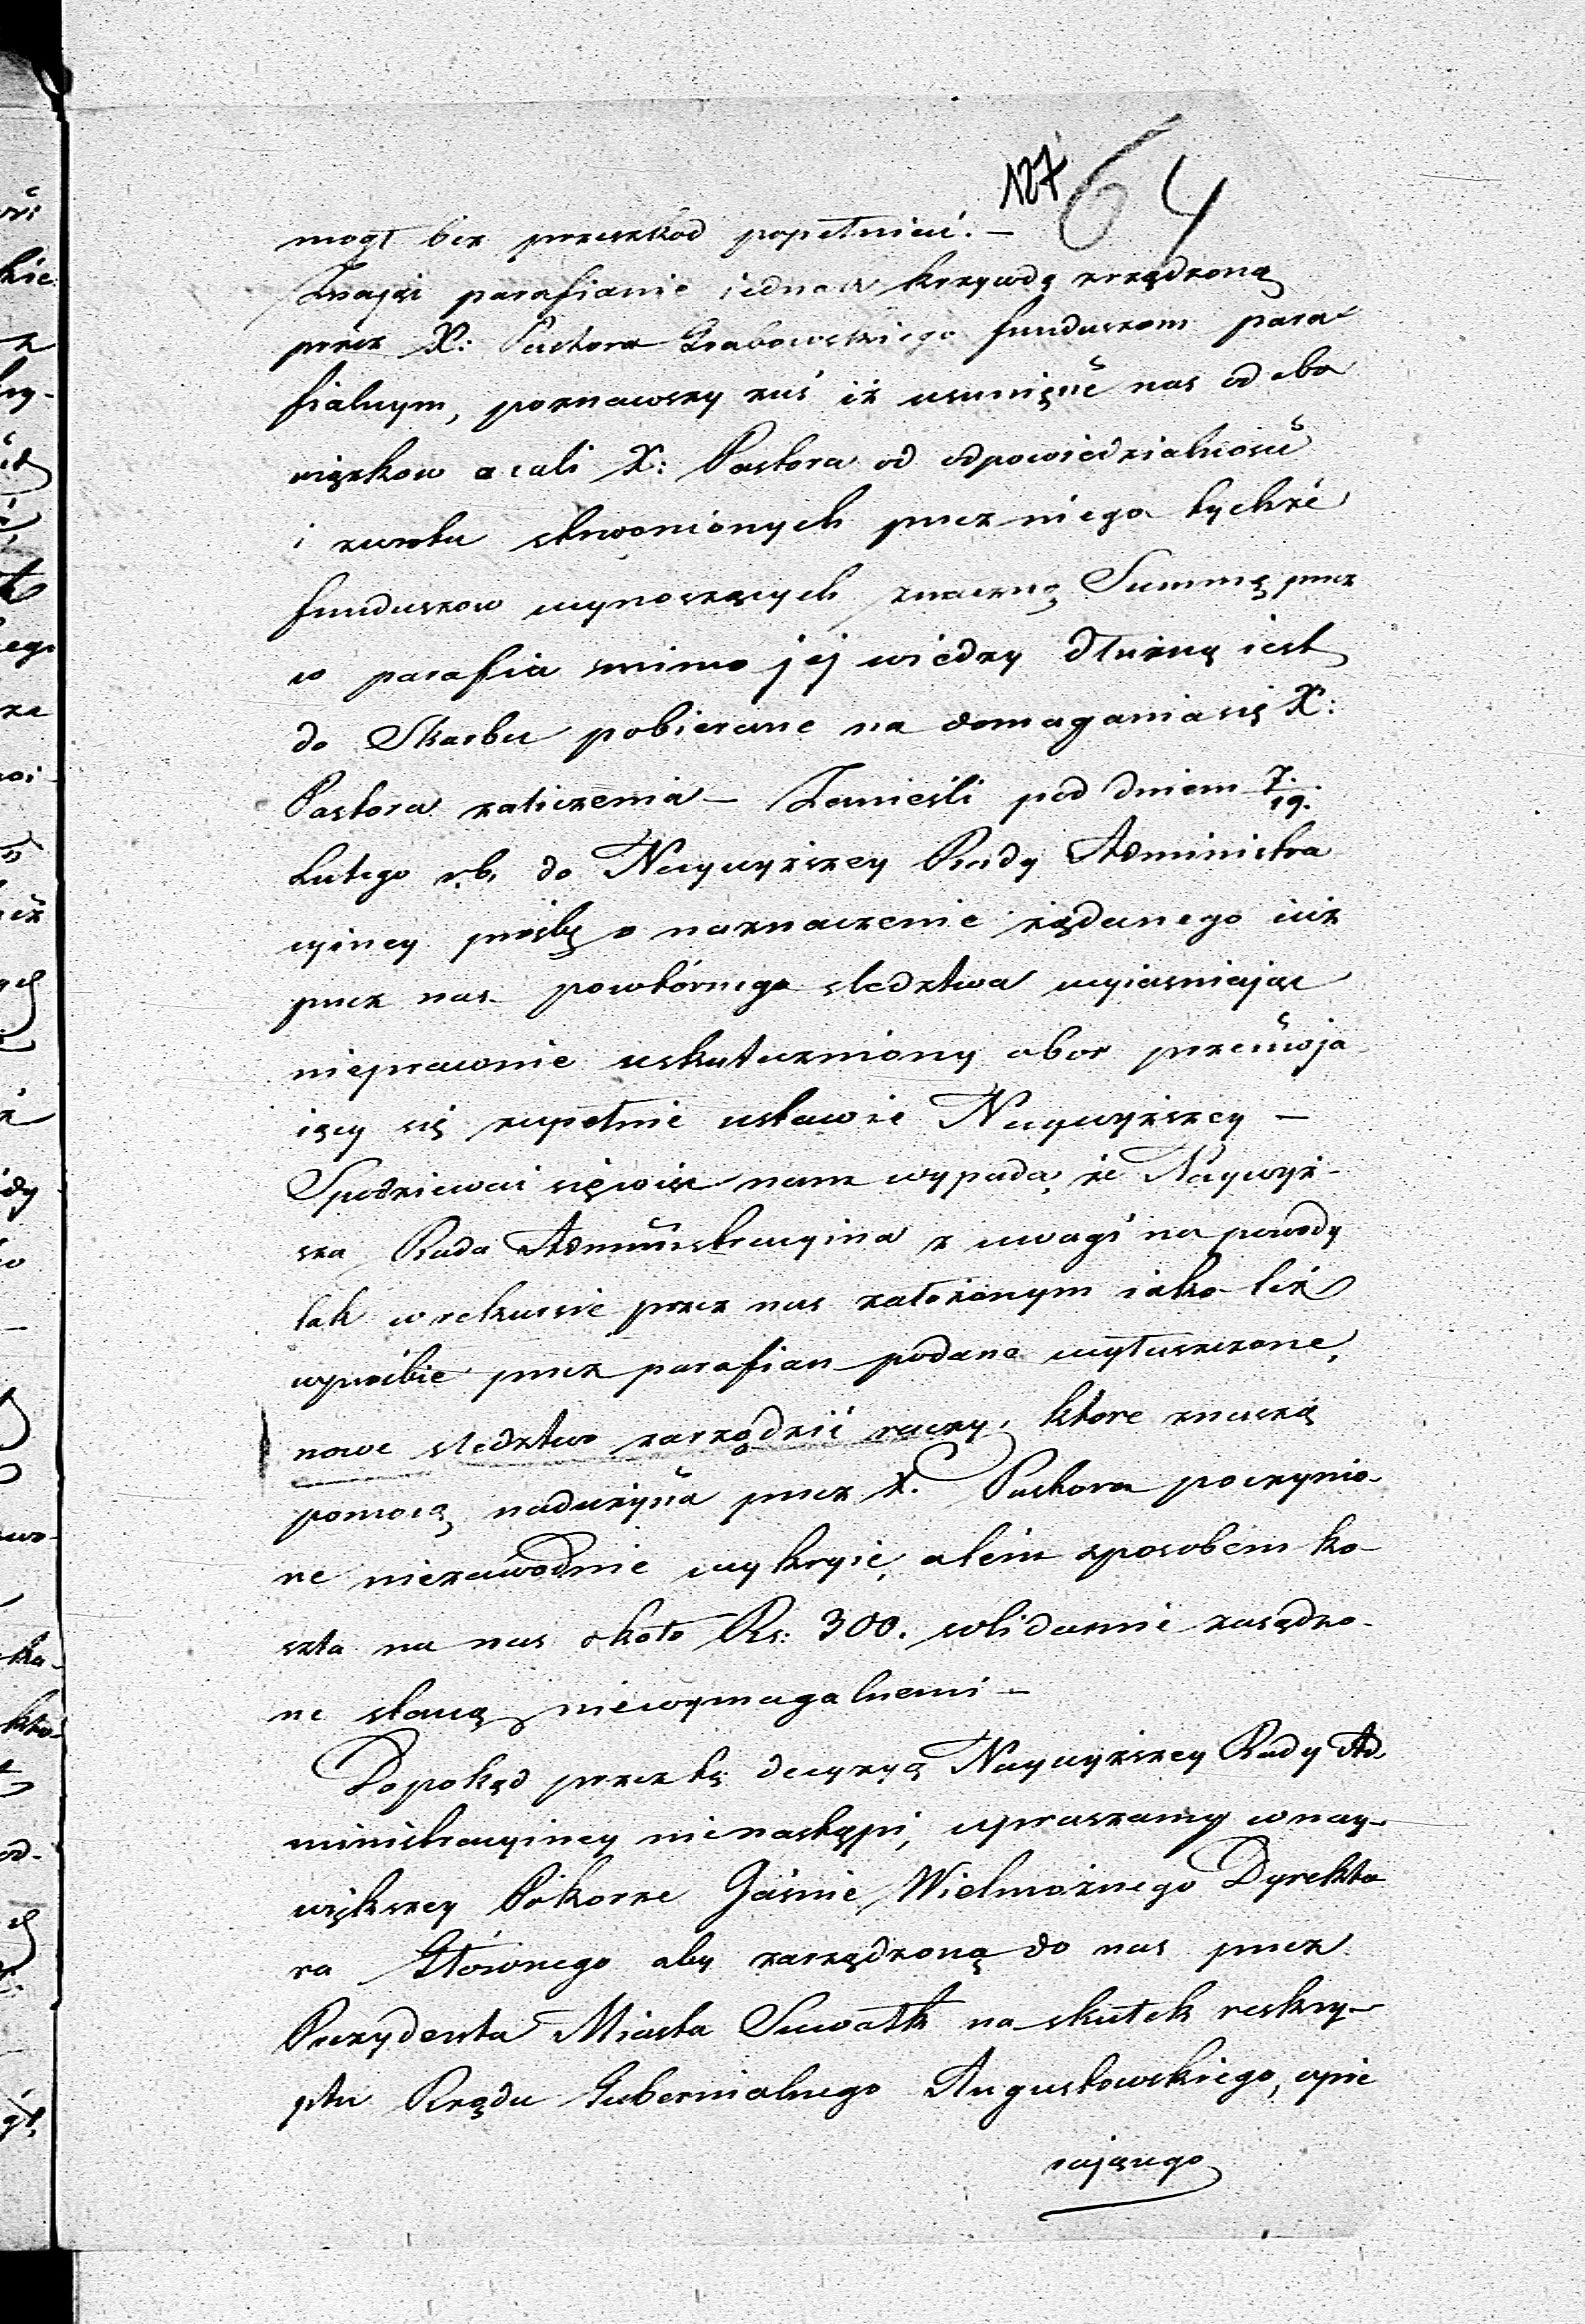 127 64
mogł bez przeszkod popełniać. —
Znając parafianie iednak krzywdę zrządzoną
przez X: Pastora Grabowskiego funduszom para
fialnym, poznawszy zaś iż usunięcie nas od obo
wiązkow ocali X: Pastora od odpowiedzialności
i zwrotu strwonionych przez niego tychże
funduszow wynoszących znaczną Summę przez
w parafia mimo jej wiedzy dłużną iest
do Skarbu pobierane na domagania się X:
Pastora zaliczenia — Zanieśli pod dniem 7/19.
Lutego r.b. do Naywyższey Rady Administra
cyiney prośbę o naznaczenie żądanego iuż
przez nas powtórnego sledztwa wyiasniając
nieprawnie uskuteczniony obor przeciwia
iący się zupełnie ustawie Naywyższey —
Spodziewać się więc nam wypada, że Naywyż-
sza Rada Administracyina z uwagi na powody
tak w rekursie przez nas założonym iako też
w prośbie przez parafian podane wyłuszczone,
nowe sledztwo zarządzić raczy, ktore znaczą
pomocą nadużycia przez X. Pastora poczynio-
ne niezawodnie wykryie, a tém sposobem ko-
szta na nas około Rs: 300. solidarnie zasądzo-
ne staną niewymagalnemi —
Dopokąd przez tę decyzyą Naywyższey Rady Ad.
ministracyiney nienastąpi, upraszamy w nay-
większey Pokorze Jaśnie Wielmożnego Dyrekto
ra Głównego aby zarządzoną do nas przez
Prezydenta Miasta Suwałk na skutek reskry-
ptu Rządu Gubernialnego Augustowskiego, opie
rającego